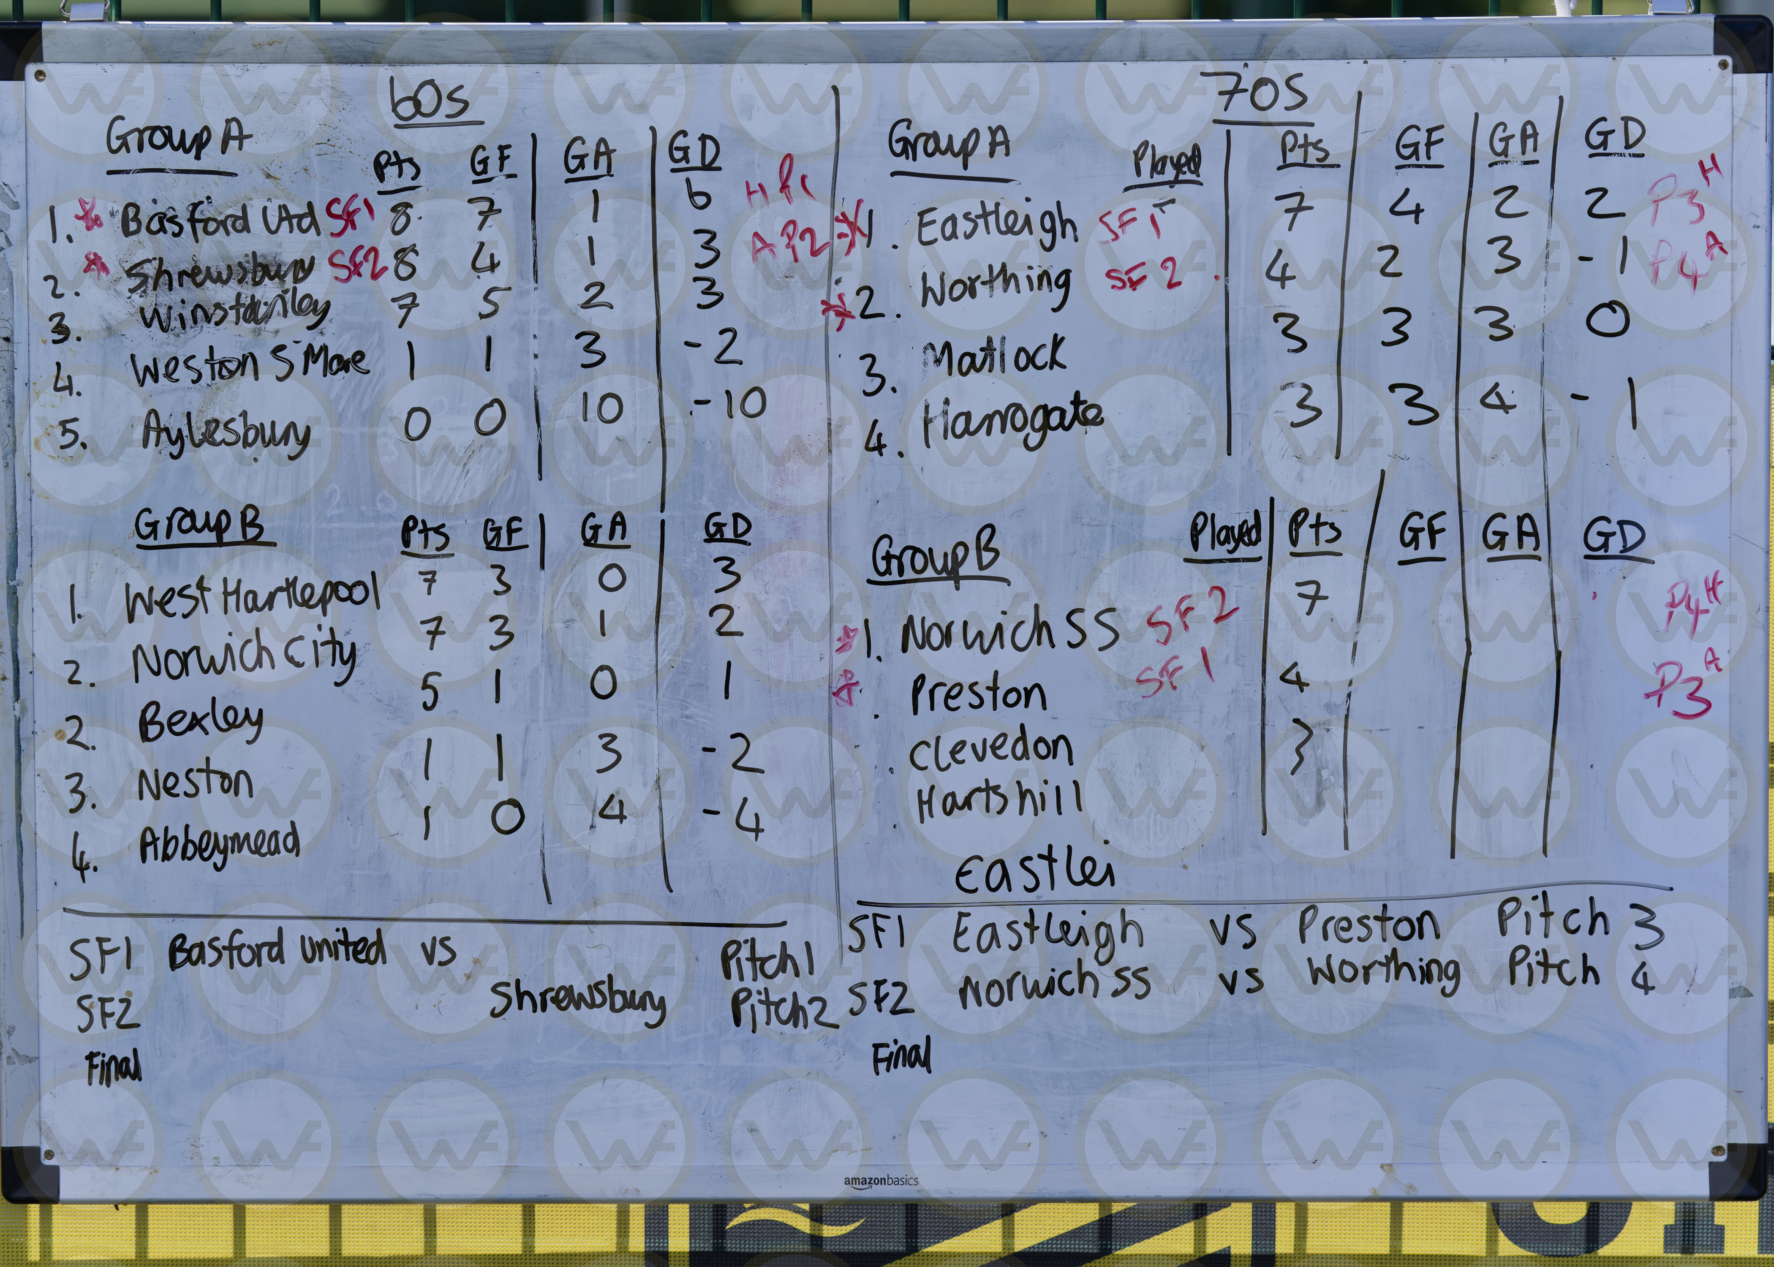 60s
Group A Pts GF GA GD
1. * Basford Utd SF1 8 7 1 6 H P1
2. * Shrewsbury SF2 8 4 1 3 A P2
3. Winstanley 7 5 2 3
4. Weston S Mare 1 1 3 -2
5. Aylesbury 0 0 10 -10
Group B Pts GF GA GD
1. West Hartlepool 7 3 0 3
2. Norwich City 7 3 1 2
2. Bexley 5 1 0 1
3. Neston 1 1 3 -2
4. Abbeymead 1 0 4 -4
SF1 Basford United vs Pitch 1
SF2 Shrewsbury Pitch 2
Final
70s
Group A Played Pts GF GA GD
* 1. Eastleigh SF1 7 4 2 2 P3 H
* 2. Worthing SF2 4 2 3 -1 P4 A
3. Matlock 3 3 3 0
4. Harrogate 3 3 4 -1
Group B Played Pts GF GA GD
* 1. Norwich SS SF2 7 P4 H
* . Preston SF1 4 P3 A
. Clevedon 3
Hartshill
Eastlei
SF1 Eastleigh vs Preston Pitch 3
SF2 Norwich SS vs Worthing Pitch 4
Final
amazonbasics